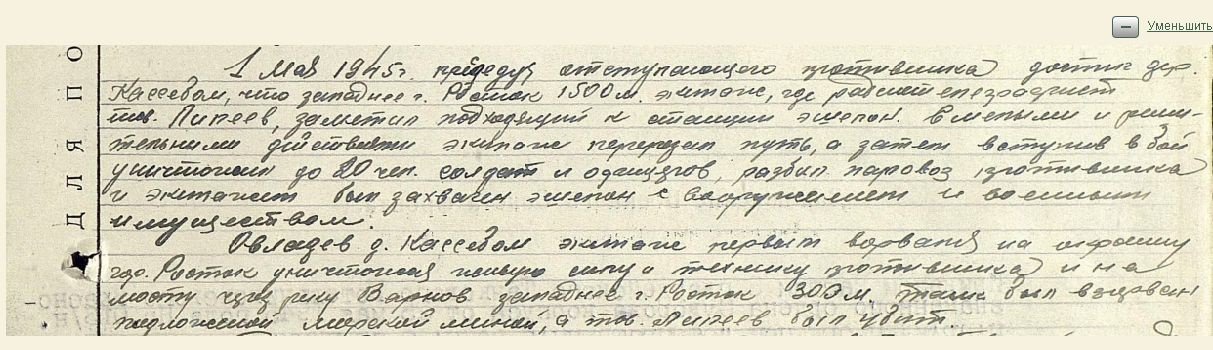 Уменьшить
ДЛЯ ПО
1 мая 1945 г. преследуя отступающего противника достиг дер.
Кассебом, что западнее г. Росток 1500 м. экипаж, где радист телеграфист
тов. Пиреев, заметил подходящий к станции эшелон. Смелыми и реши-
тельными действиями экипаж перерезал путь, а затем вступив в бой
уничтожил до 20 чел. солдат и офицеров, разбил паровоз противника
и экипажем был захвачен эшелон с вооружением и военным
имуществом.
Овладев д. Кассебом экипаж первым ворвался на окраину
гор. Росток уничтожая живую силу и технику противника и на
мосту через реку Варнов западнее г. Росток 300 м. танк был взорван
подложенной морской миной, а тов. был убит.